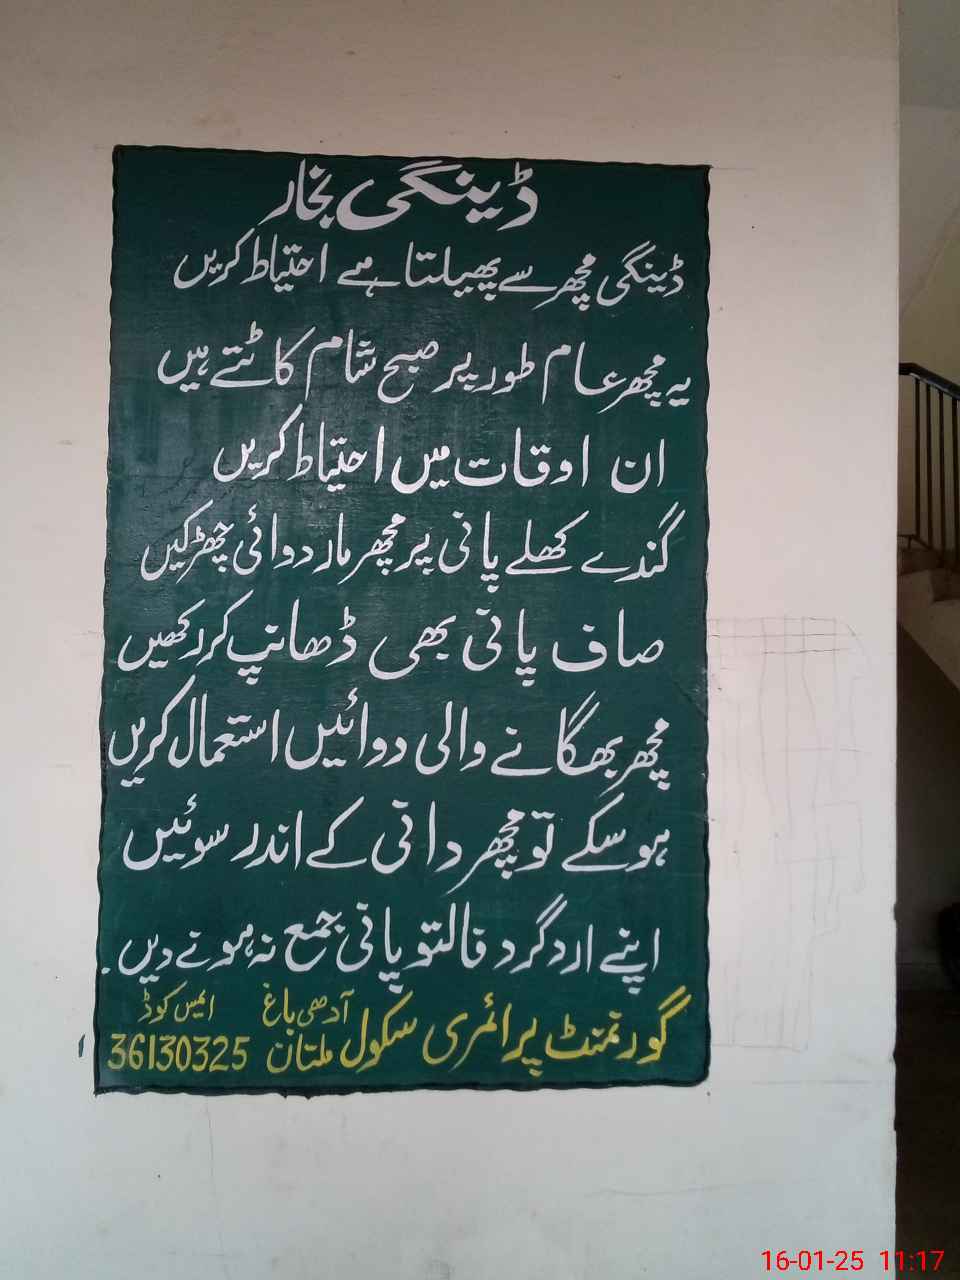 ڈینگی بخار
ڈینگی مچھر سے پھیلتا ہے احتیاط کریں
یہ مچھر عام طور پر صبح شام کاٹتے ہیں
ان اوقات میں احتیاط کریں
گندے کھلے پانی پر مچھر مار دوائی چھڑکیں
صاف پانی بھی ڈھانپ کر رکھیں
مچھر بھگانے والی دوائیں استعمال کریں
ہو سکے تو مچھر دانی کے اندر سوئیں
اپنے ارد گرد فالتو پانی جمع نہ ہونے دیں.
گورنمنٹ پرائمری سکول آدھی باغ ملتان ایمس کوڈ 36130325
16-01-25 11:17